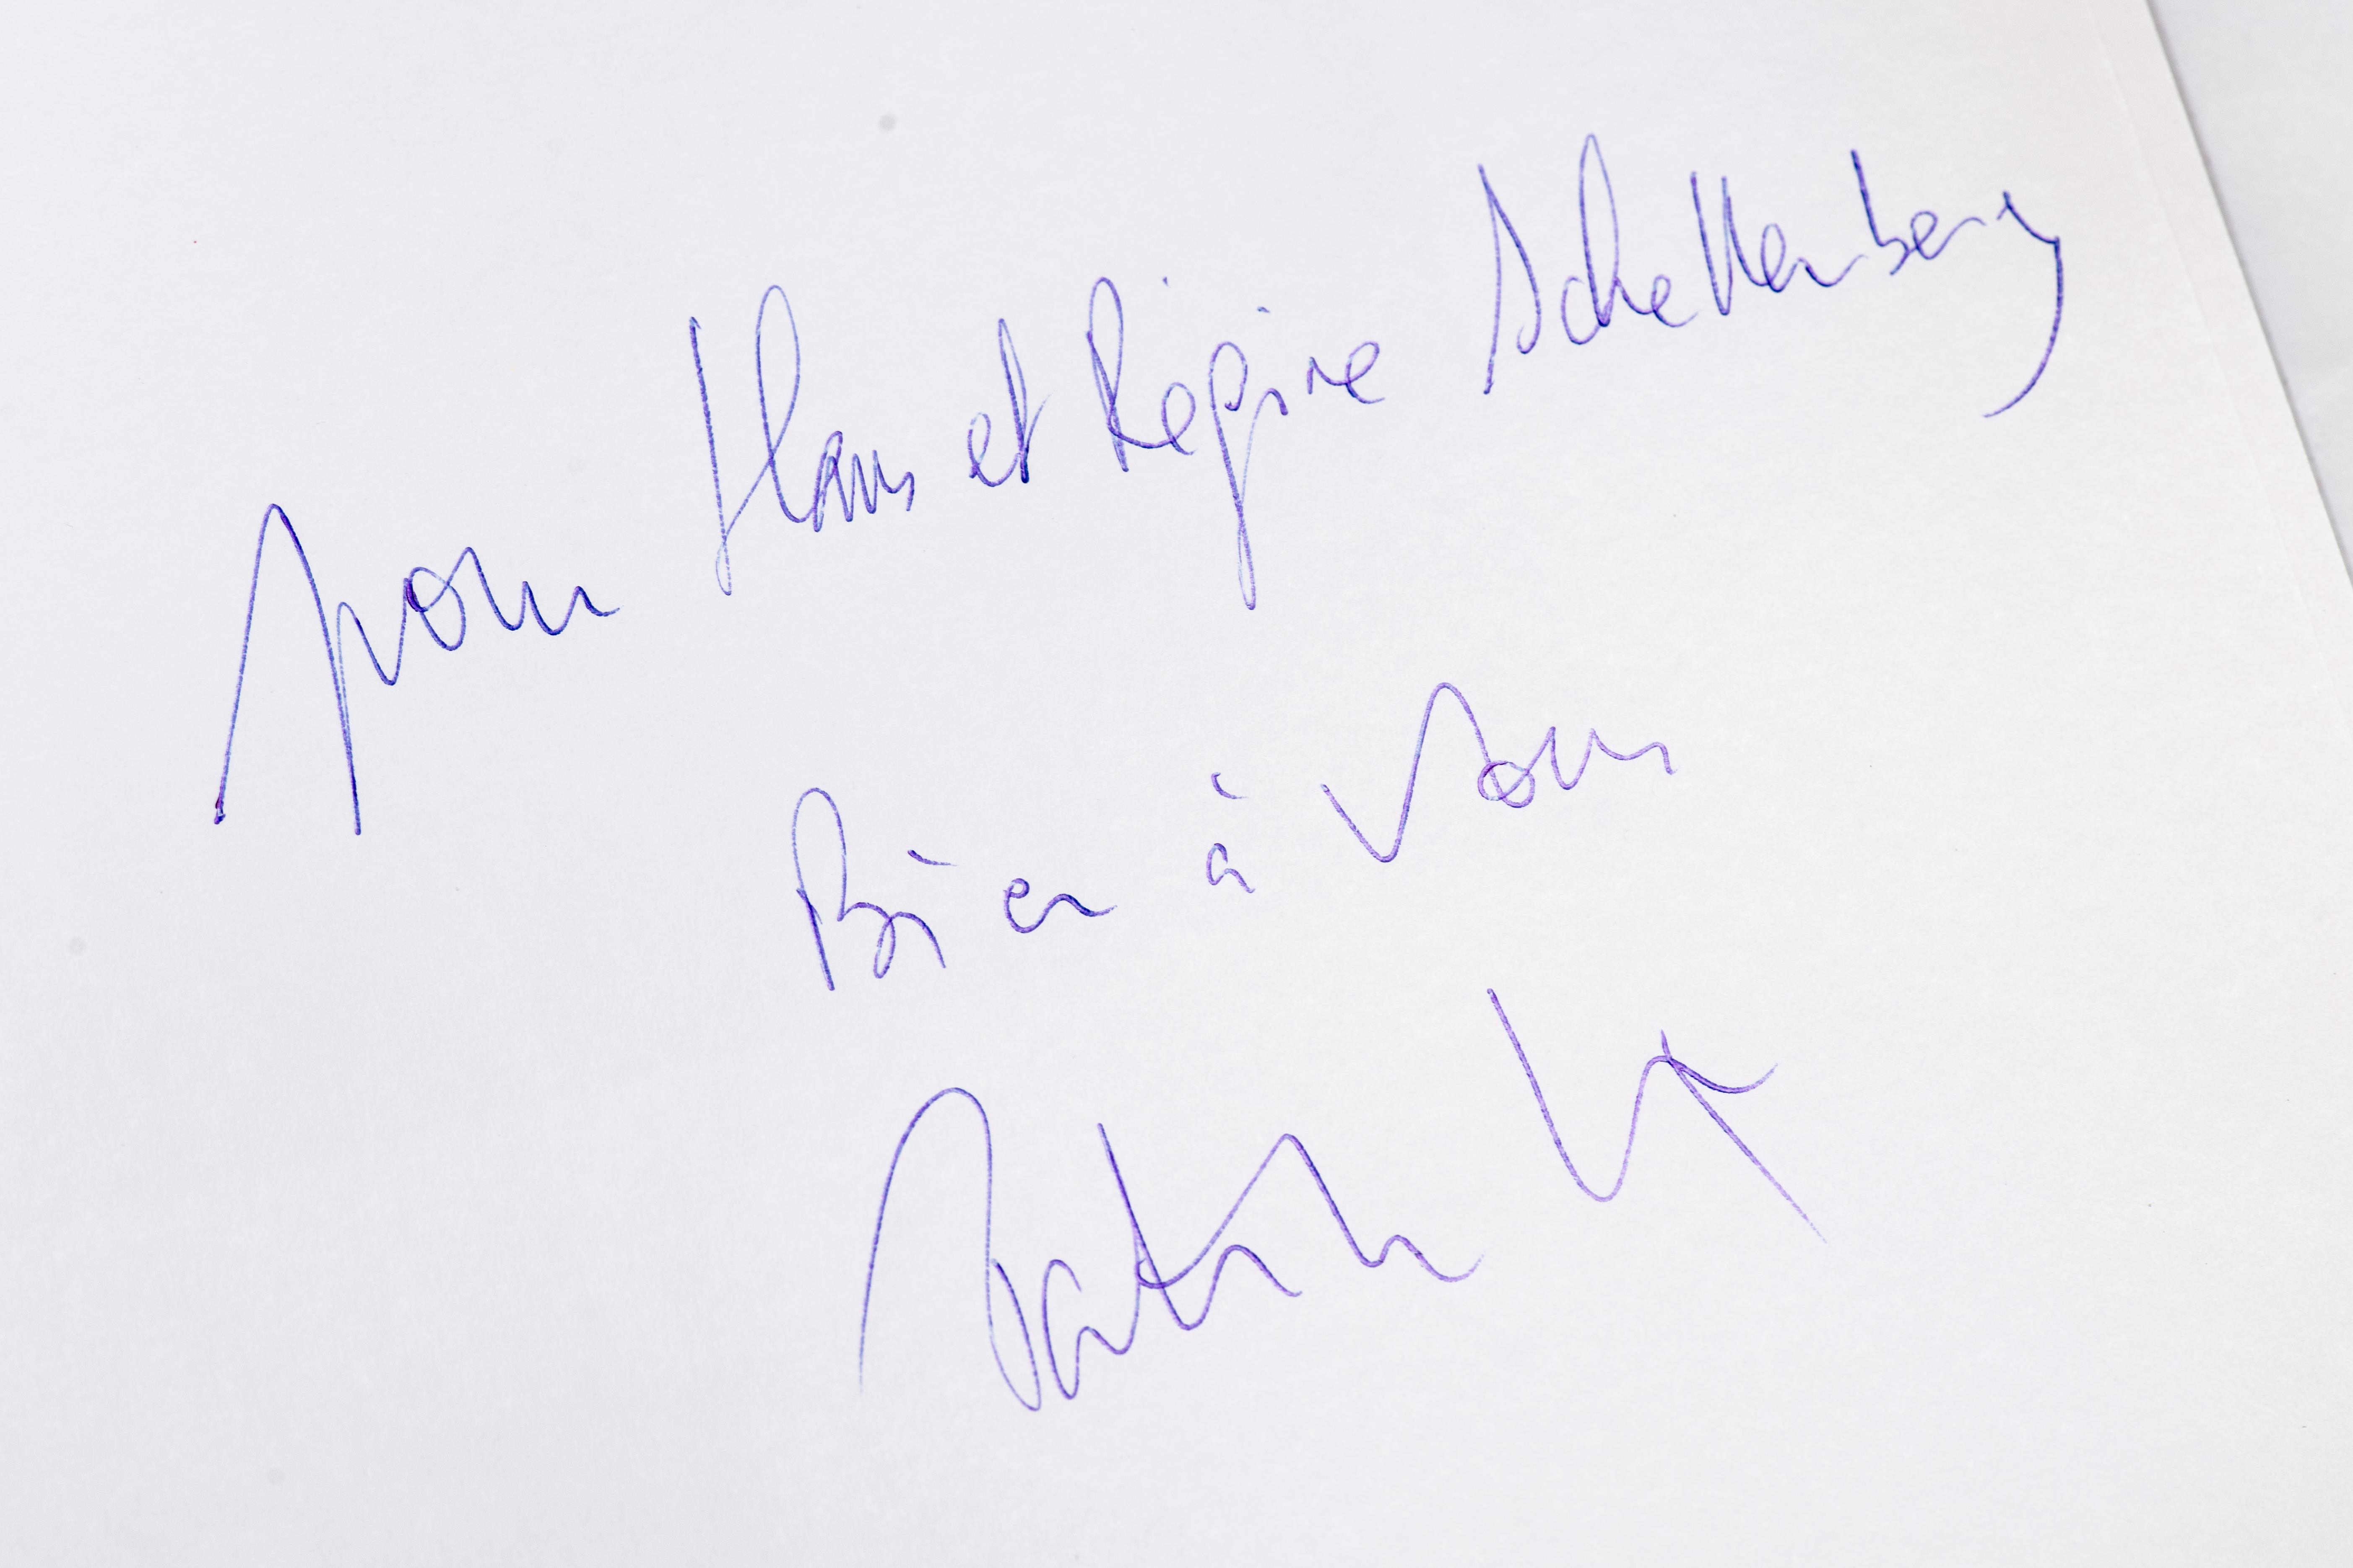 pour Hans et Régine Schellenberg
Bien à vous
Patrick